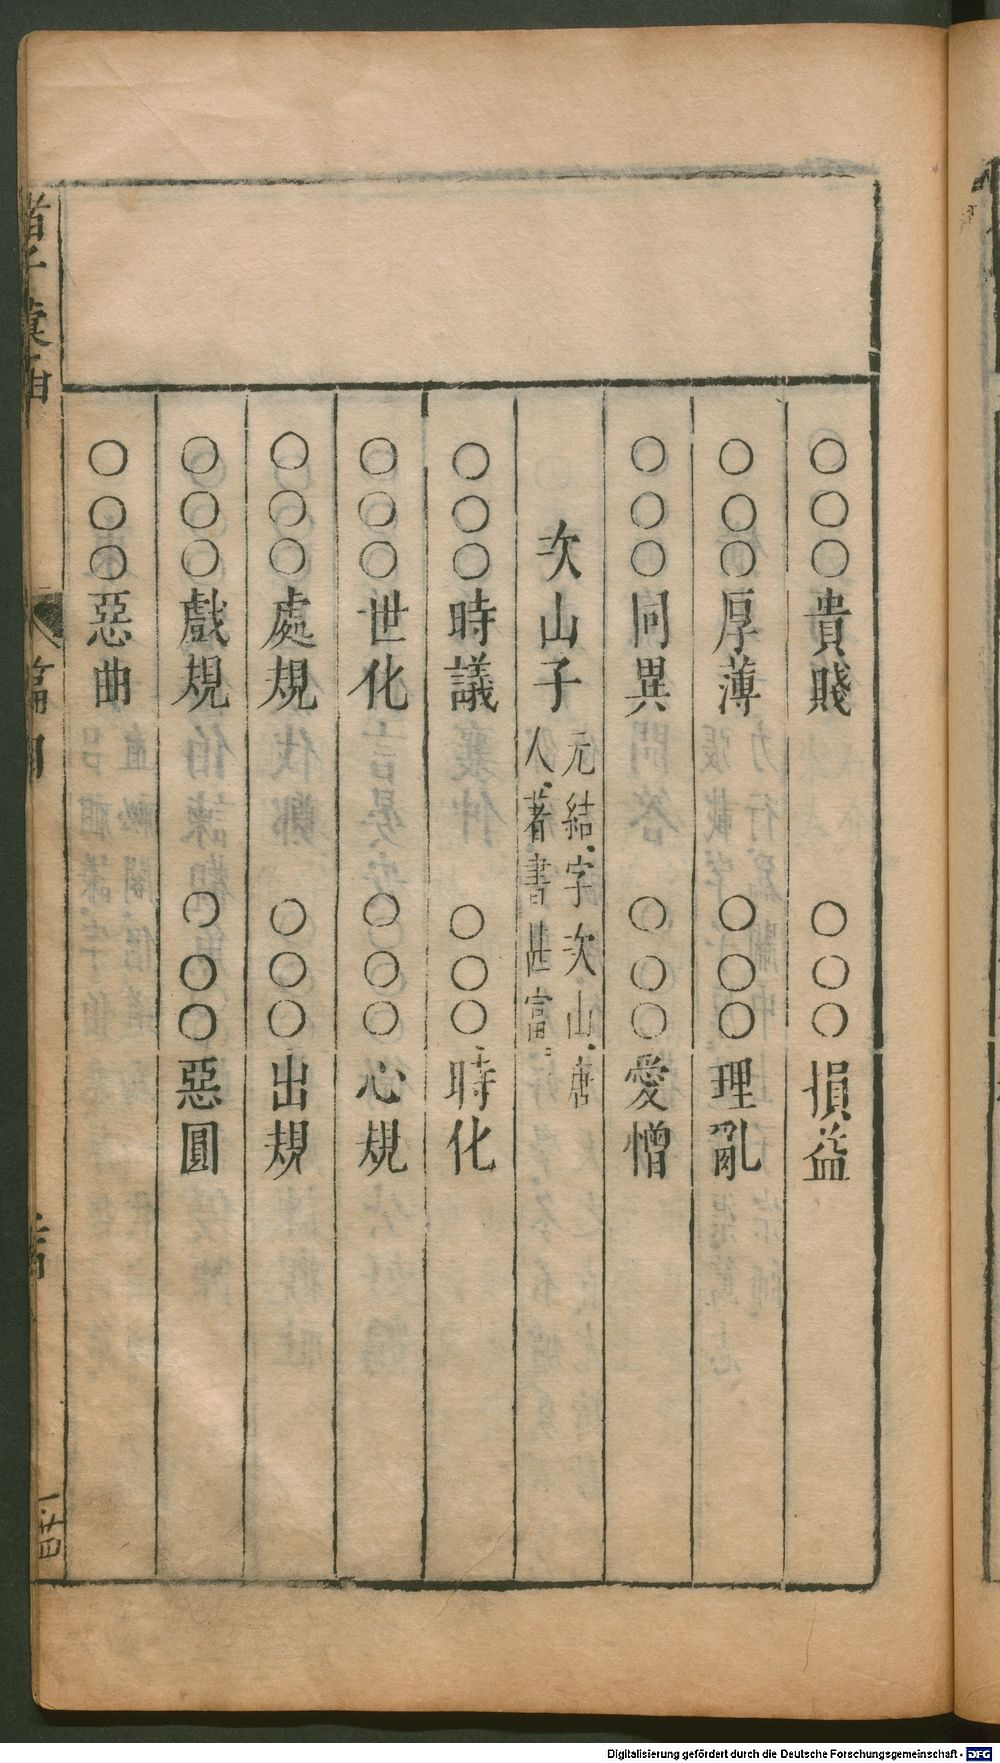 ○○○貴賤 ○○○損益
○○○厚薄 ○○○理亂
○○○同異 ○○○愛憎
次山子 元結、字次山、唐
人、著書甚富、
○○○時議 ○○○時化
○○○世化 ○○○心規
○○○處規 ○○○出規
○○○戲規 ○○○惡圓
○○○惡曲
篇目
Digitalisierung gefördert durch die Deutsche Forschungsgemeinschaft - DFG